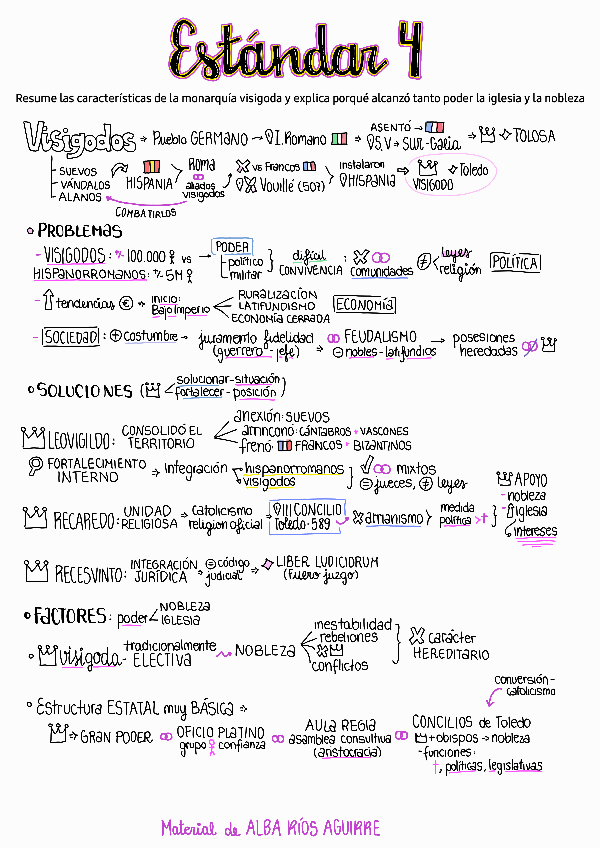 Estándar 4
Resume las características de la monarquía visigoda y explica porqué alcanzó tanto poder la iglesia y la nobleza
Visigodos → Pueblo GERMANO → I.Romano → ASENTÓ → S.V → SUR-Galia → TOLOSA
SUEVOS
VÁNDALOS
ALANOS
HISPANIA
COMBATIRLOS
Roma
aliados
visigodos
vs Francos
Vouillé (507)
instalaron
HISPANIA
Toledo
VISIGODO
PROBLEMAS
- VISIGODOS: +/- 100.000 vs
HISPANORROMANOS: +/- 5M
PODER
político
militar
difícil
CONVIVENCIA
: comunidades
≠ leyes
religión
POLÍTICA
- ↑ tendencias € → inicio:
Bajo Imperio
RURALIZACIÓN
LATIFUNDISMO
ECONOMÍA CERRADA
ECONOMÍA
- SOCIEDAD: + costumbre → juramento fidelidad
(guerrero - jefe)
FEUDALISMO
= nobles-latifundios
→ posesiones
heredadas
SOLUCIONES (solucionar-situación
fortalecer-posición)
LEOVIGILDO: CONSOLIDÓ EL
TERRITORIO
anexión: SUEVOS
arrinconó: CÁNTABROS + VASCONES
frenó: FRANCOS + BIZANTINOS
FORTALECIMIENTO
INTERNO
→ integración
hispanorromanos
visigodos
mixtos
= jueces, ≠ leyes
RECAREDO: UNIDAD
RELIGIOSA
→ catolicismo
religion oficial
III CONCILIO
Toledo·589
arrianismo
medida
política > †
APOYO
- nobleza
- iglesia
intereses
RECESVINTO: INTEGRACIÓN
JURÍDICA
= código
judicial
→ LIBER LUDICIORUM
(Fuero juzgo)
FACTORES: poder
NOBLEZA
IGLESIA
visigoda - tradicionalmente
ELECTIVA
NOBLEZA
inestabilidad
rebeliones
conflictos
carácter
HEREDITARIO
Estructura ESTATAL muy BÁSICA →
→ GRAN PODER
OFICIO PLATINO
grupo confianza
AULA REGIA
asamblea consultiva
(aristocracia)
conversión-
catolicismo
CONCILIOS de Toledo
+ obispos → nobleza
- funciones:
†, políticas, legislativas
Material de ALBA RÍOS AGUIRRE